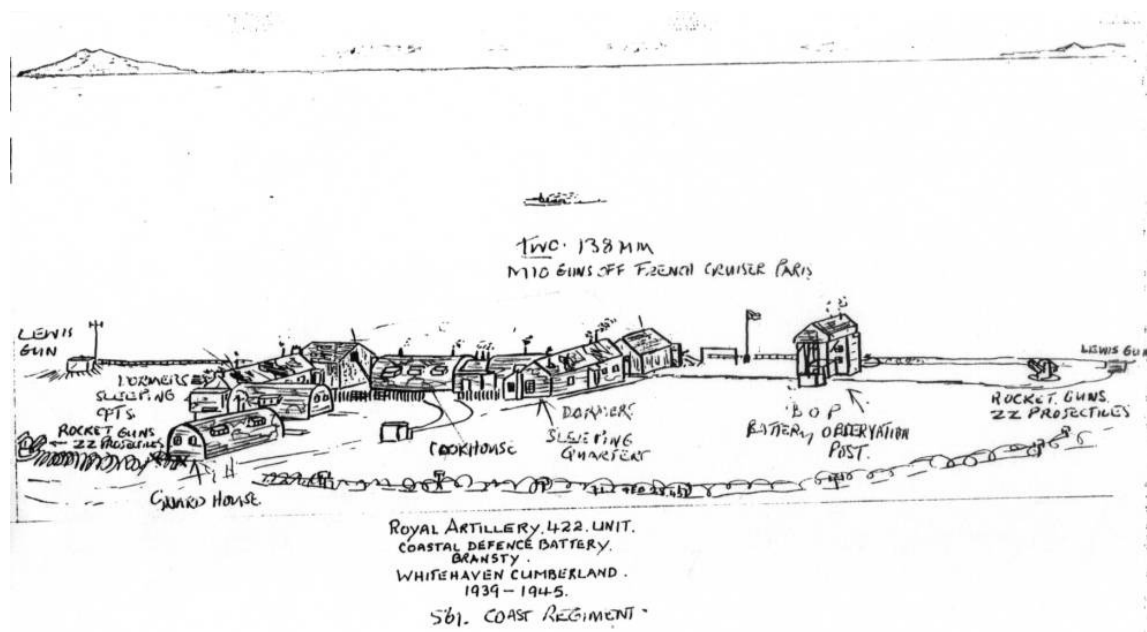 TWO. 138 MM
M10 GUNS OFF FRENCH CRUISER PARIS
LEWIS
GUN
LEWIS GUN
DORMERS
SLEEPING
QTS
ROCKET GUNS
ZZ PROJECTILES
GUARD HOUSE
COOKHOUSE
DORMERS
SLEEPING
QUARTERS
B O P
BATTERY OBSERVATION
POST.
ROCKET GUNS.
ZZ PROJECTILES
ROYAL ARTILLERY. 422. UNIT.
COASTAL DEFENCE BATTERY.
BRANSTY.
WHITEHAVEN CUMBERLAND.
1939-1945.
561. COAST REGIMENT.